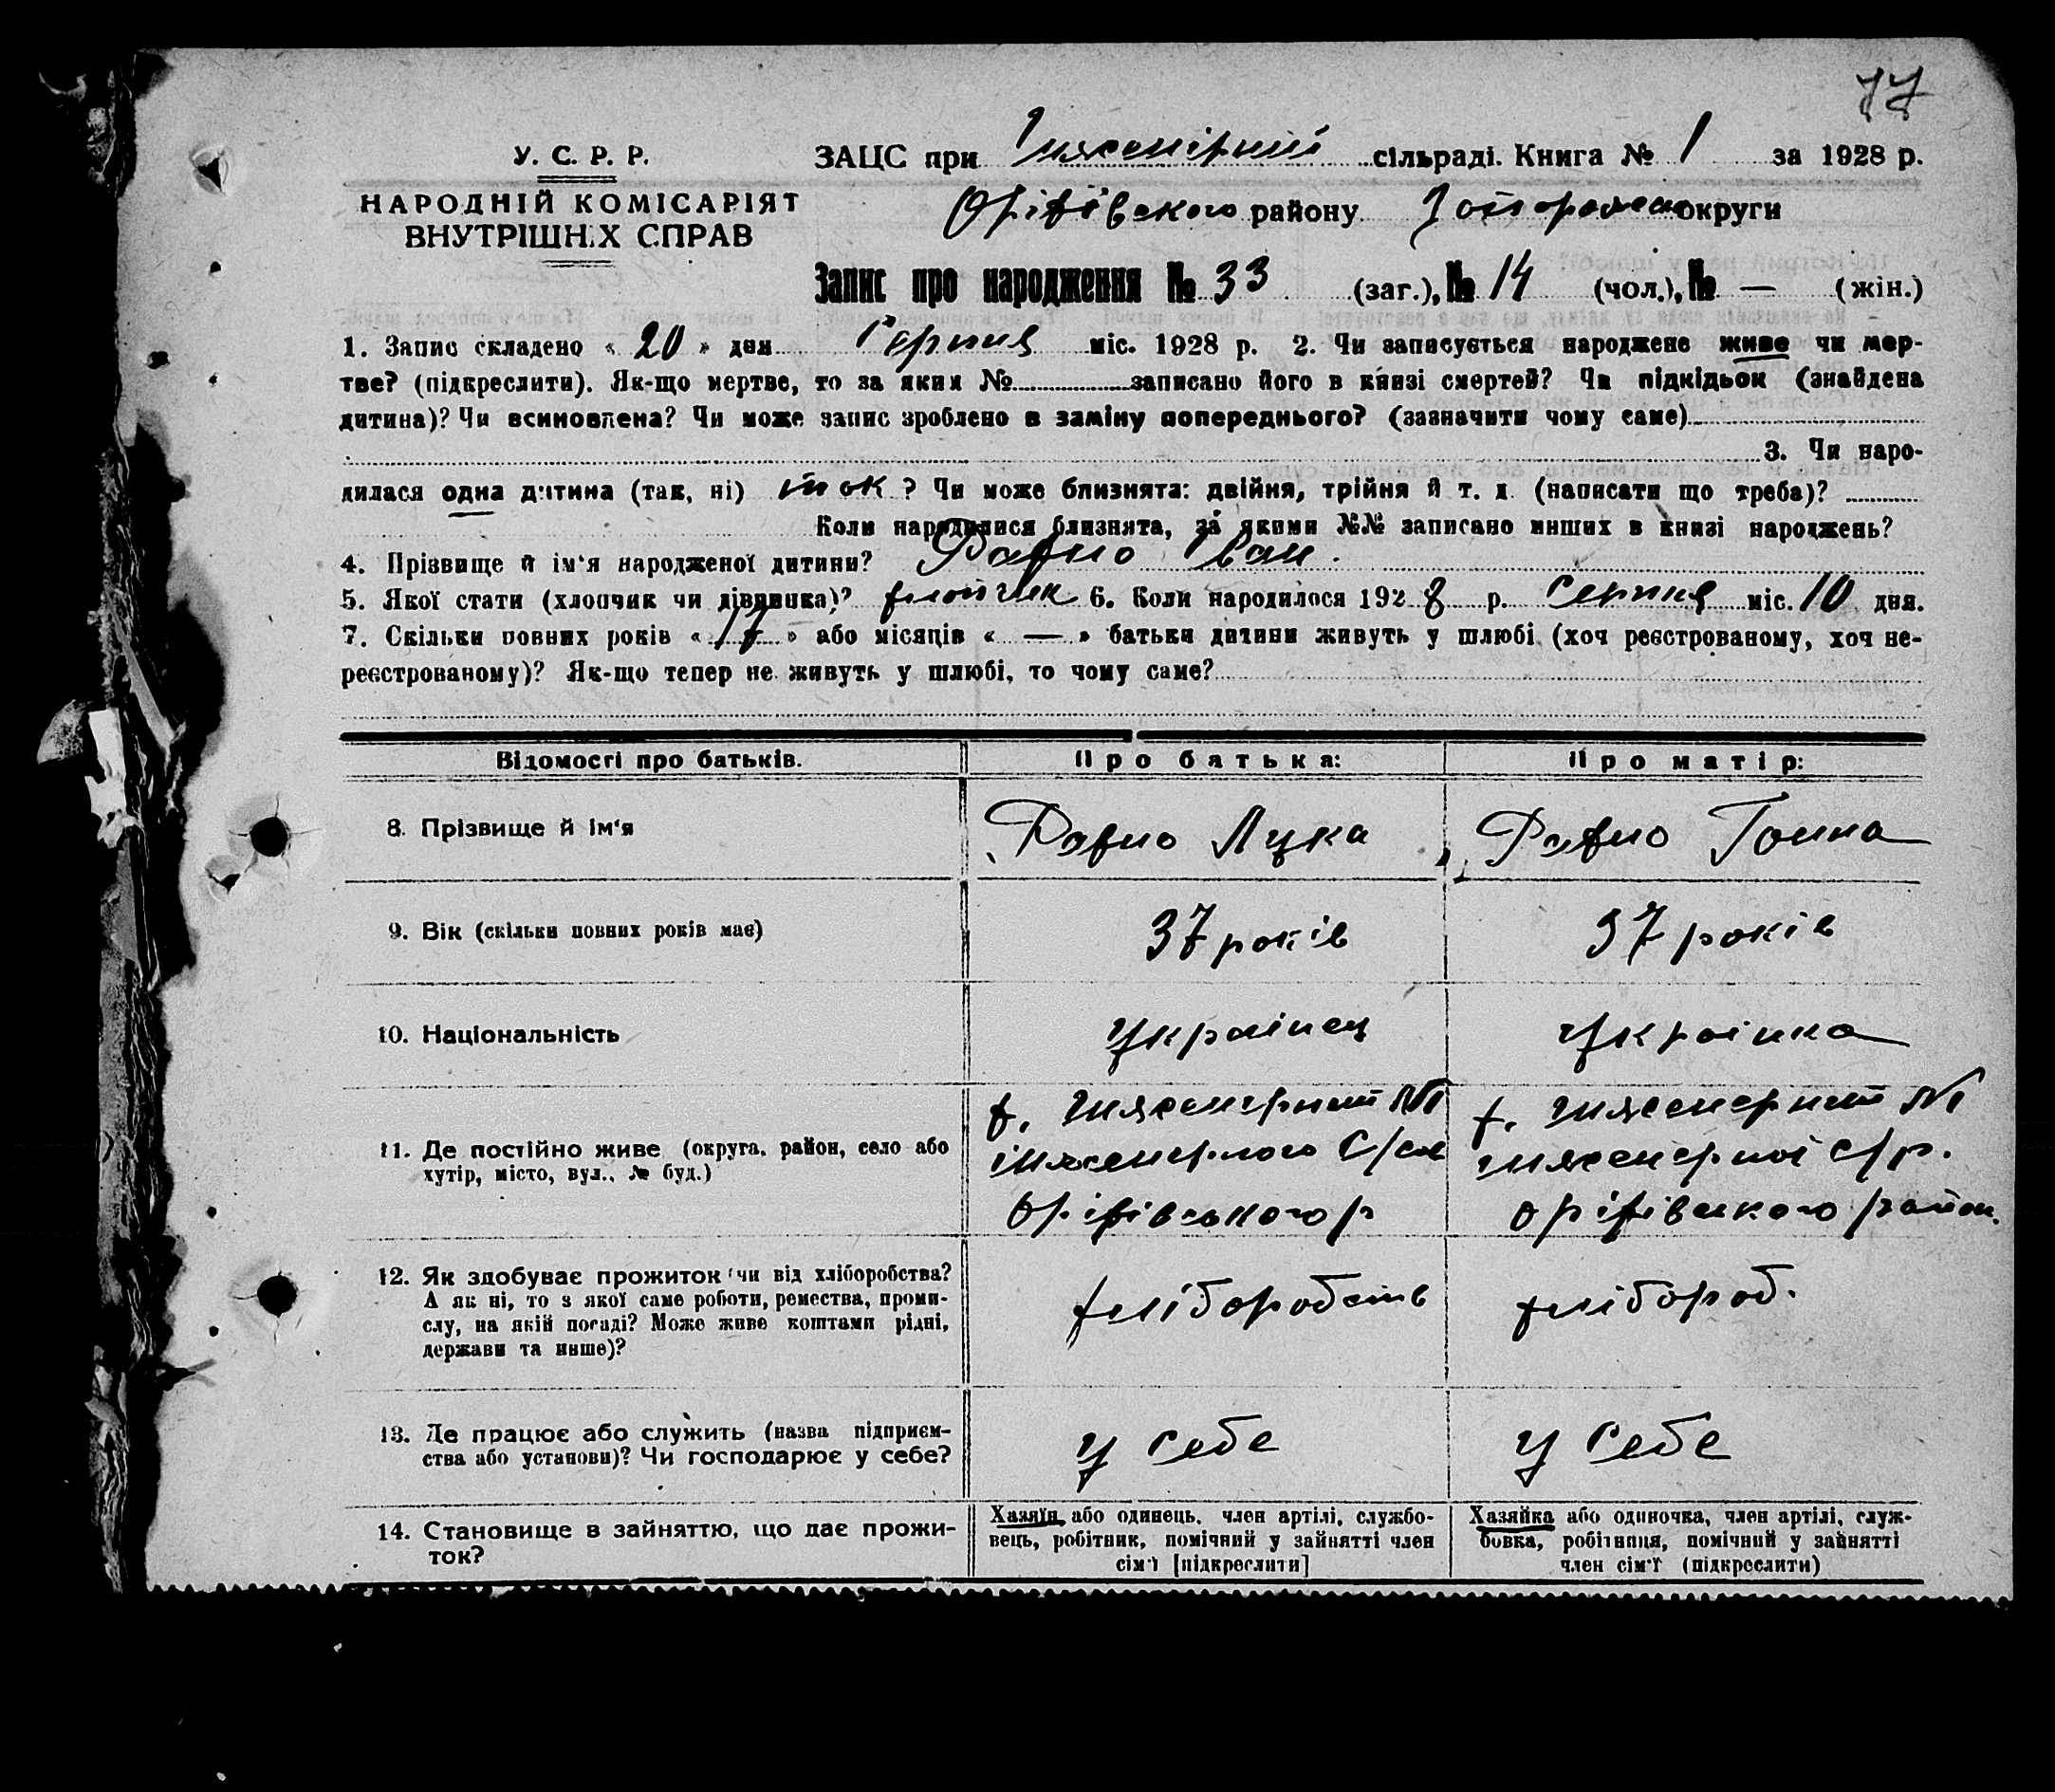 77
У. С. Р. Р.
НАРОДНІЙ КОМІСАРІЯТ
ВНУТРІШНІХ СПРАВ
ЗАЦС при Інженірній сільраді. Книга № 1 за 1928 р.
Оріхівского району Запорожськ округи
Запис про народження № 33 (заг.), № 14 (чол.), № — (жін.)
1. Запис складено « 20 » дня Серпня міс. 1928 р. 2. Чи записується народжене живе чи мер-
тве? (підкреслити). Як-що мертве, то за яким № записано його в книзі смертей? Чи підкідьок (знайдена
дитина)? Чи всиновлена? Чи може запис зроблено в заміну попереднього? (зазначити чому саме)
3. Чи наро-
дилася одна дитина (так, ні) так ? Чи може близнята: двійня, трійня й т. д. (написати що треба)?
Коли народилися близнята, за якими №№ записано инших в книзі народжень?
4. Прізвище й ім'я народженої дитини? Рахно Іван.
5. Якої стати (хлопчик чи дівчинка)? хлопчик 6. Коли народилося 1928 р. Серпня міс. 10 дня.
7. Скільки повних років « 17 » або місяців « — » батьки дитини живуть у шлюбі (хоч реєстрованому, хоч не-
реєстрованому)? Як-що тепер не живуть у шлюбі, то чому саме?
Відомості про батьків. Про батька: Про матір:
8. Прізвище й ім'я Рахно Лука Рахно Ганна
9. Вік (скільки повних років має) 37 років 37 років
10. Національність Українец Українка
11. Де постійно живе (округа, район, село або
хутір, місто, вул., № буд.)
х. Інженерний №1
інженерного С/сов
Оріхівського р
х. Інженерний №1
інженерної с/р.
Оріхівського район.
12. Як здобуває прожиток (чи від хліборобства?
А як ні, то з якої саме роботи, ремества, проми-
слу, на якій посаді? Може живе коштами рідні,
держави та инше)?
хліборобств
хлібороб.
13. Де працює або служить (назва підприєм-
ства або установи)? Чи господарює у себе?
у себе
у себе
14. Становище в зайняттю, що дає прожи-
ток?
Хазяїн або одинець, член артілі, службо-
вець, робітник, помічний у зайнятті член
сім'ї [підкреслити]
Хазяйка або одиночка, член артілі, служ-
бовка, робітниця, помічний у зайнятті
член сім'ї (підкреслити)